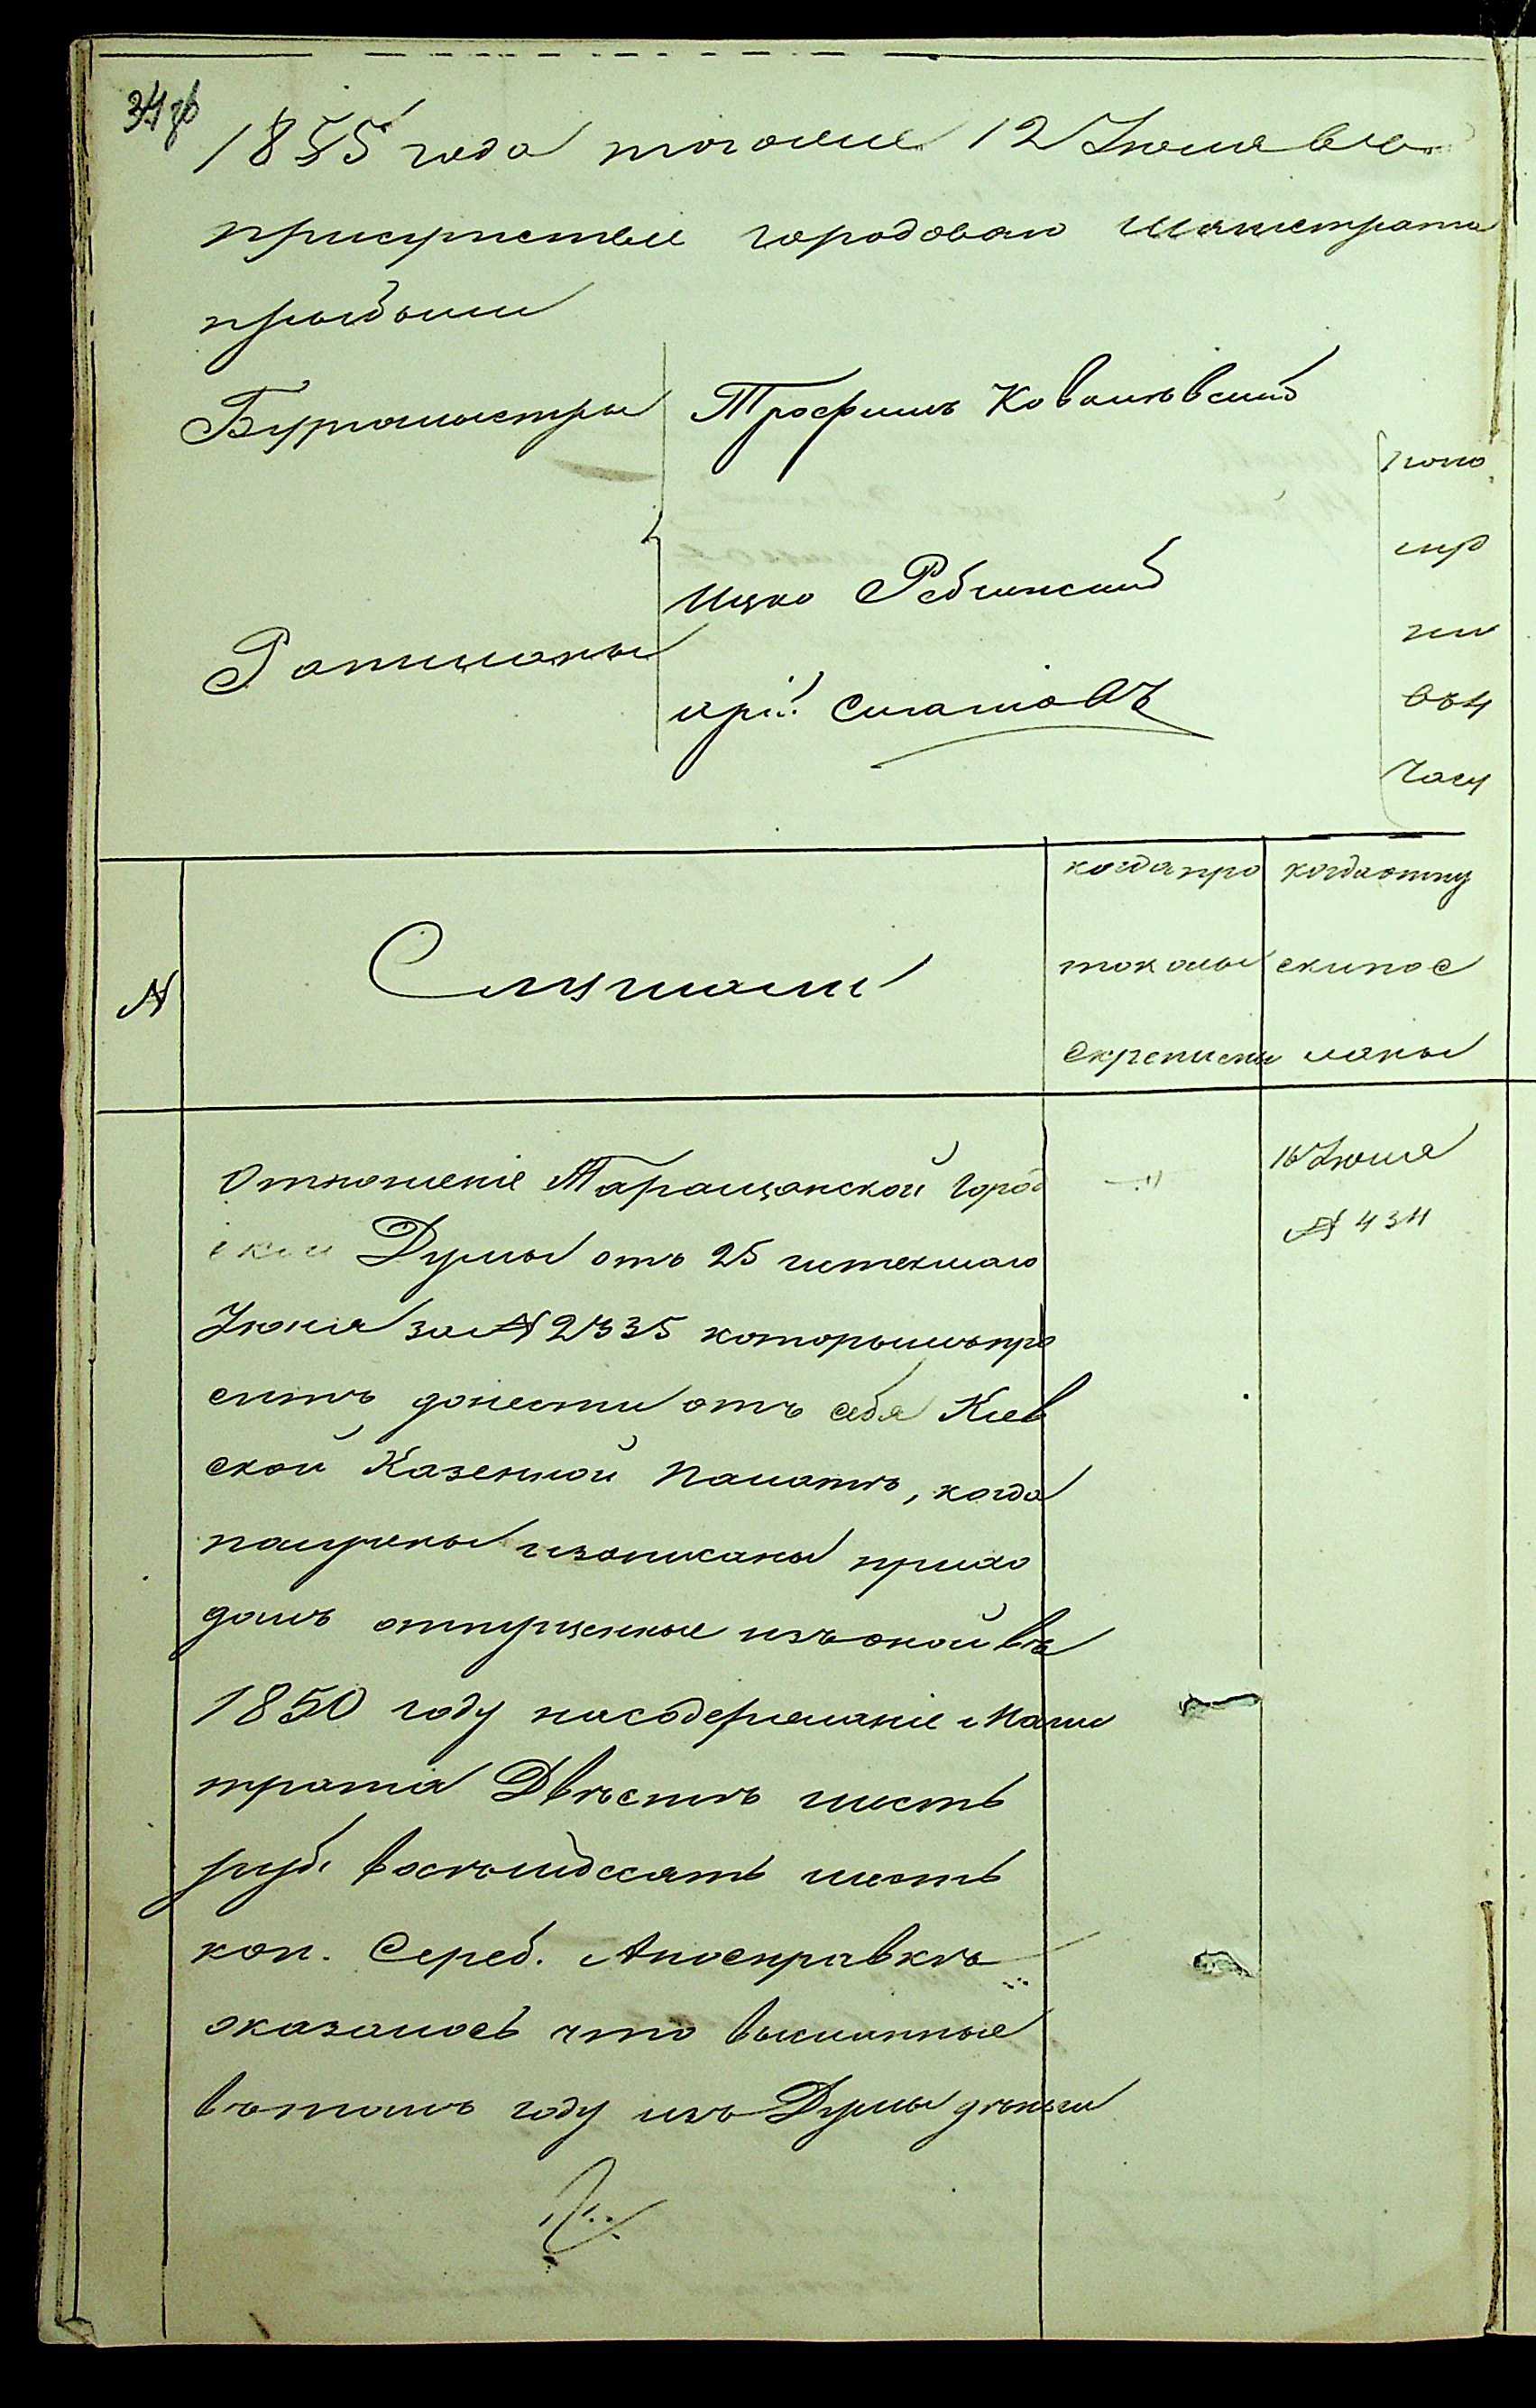 34 об
1855 года тогоже 12 Іюля въ
присутствіе городоваго магистрата
прибыли
Бургомистры Трофимъ Ковалѣвскій
Ицко Рабчинскій
Ратманы
Час
№ Слушали
когда про когда отпу
токолы ски пос
скреплены ланы
Отношеніе Таращанской Город
ской Думы отъ 25 истекшаго
Іюня за № 2335 которымъ про
ситъ донести отъ себя Кіев
ской Казенной Палатѣ, когда
получены и записаны прихо
домъ отпущенные изъ оной въ
1850 году на содержаніе Маги
трата Двѣстѣ шесть
руб. восѣмдесятъ шесть
коп. Сереб. А по справкѣ
оказалось что высланные
вътомъ году изъ Думы дѣньги
16 Іюля
№ 434